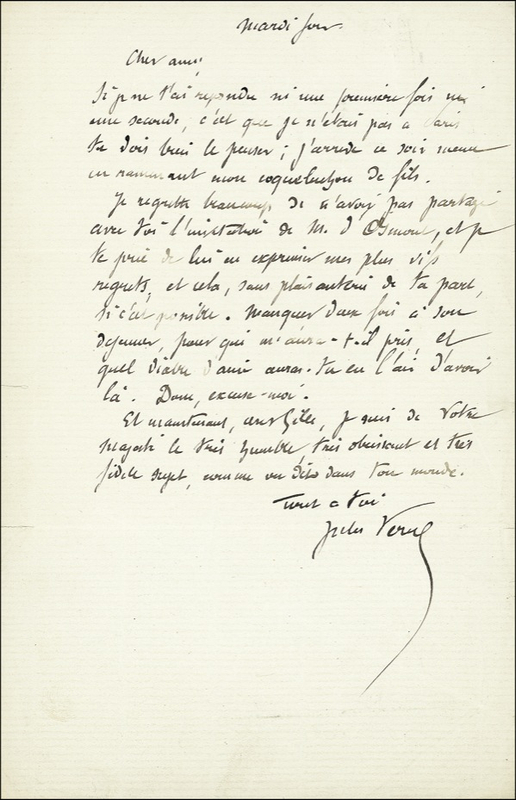 Mardi soir
Cher ami,
Si je ne t'ai repondu ni une première fois ni
une seconde, c'est que je n'étais pas à Paris
tu dois bien le penser ; j'arrive ce soir même
en ramenant mon coqueluchon de fils.
Je regrette beaucoup de n'avoir pas partagé
avec toi l'invitation de M. d'Osmoy, et je
te prie de lui en exprimer mes plus vifs
regrets, et cela, sans plaisanterie de ta part,
si c'est possible. Manquer deux fois à son
dejeuner, pour qui m'aura-t-il pris, et
quel diable d'ami auras-tu eu l'air d'avoir
là. Donc, excuse-moi.
Et maintenant, cher Gille, je suis de Votre
Majesté le très humble, très obéissant et très
fidèle sujet, comme on dit dans ton monde.
Tout à toi
Jules Verne